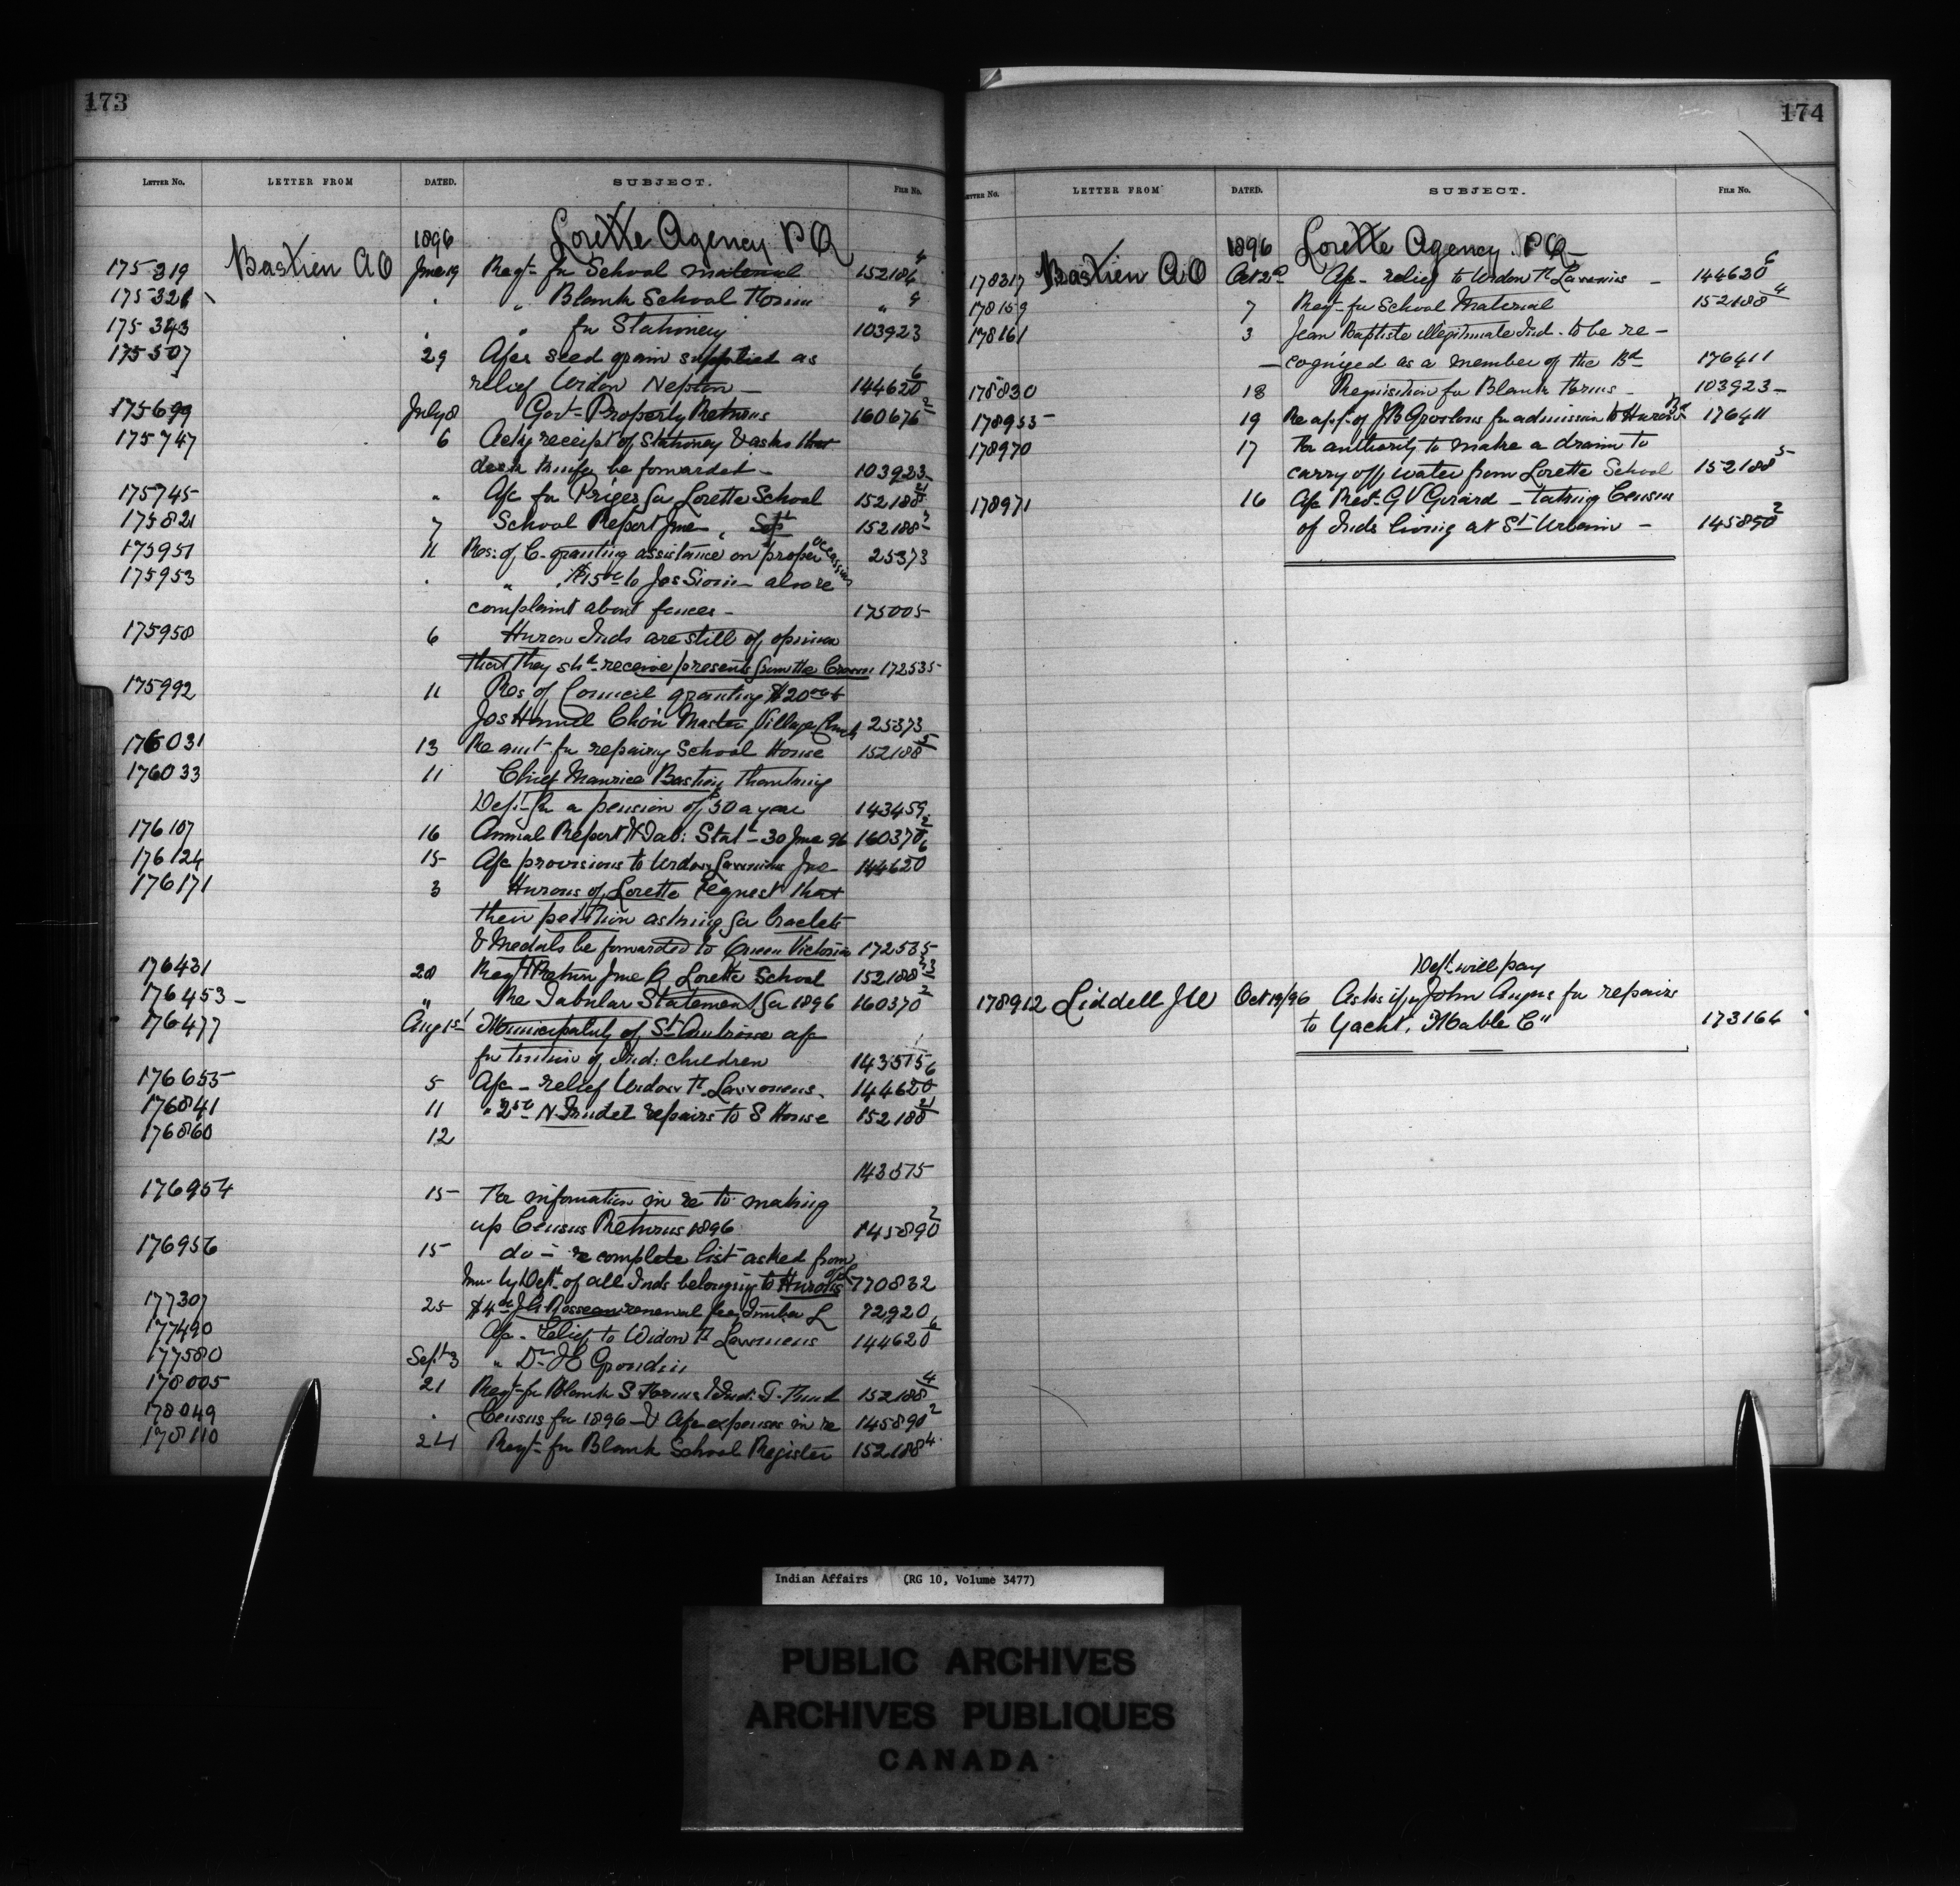 173
LETTER No. LETTER FROM DATED. SUBJECT. FILE No.
1896 Lorette Agency P Q
175319 Bastien A O June 19 Reqt- for School material 152186 4
175321 " " Blank School Forms " 4
175343 " " for Stationery 103923
175507 29 A/cs seed grain supplied as
relief Widow Neptun - 144620 6
175699 July 8 Govt- Property Returns 160676 2
175747 6 Ackg receipt of Stationery & asks that
desk knife be forwarded - 103923
175745 " A/c for Prizes for Lorette School 152188 21
175821 7 School Report June 152188 2
175951 11 Res: of C- granting assistance on proper occasions 25373
175953 " " $15 00 to Jos Sioui- also re
complaint about fences - 175005
175958 6 Huron Inds are still of opinion
that they shd receive presents from the Crown 172535
175992 11 Res of Council granting $20 00 to
Jos Choir Master Village Church 25373
176031 13 Re amt- for repairing School House 152188 5
176033 11 Chief Maurice Bastien thanking
Dept- for a pension of $50 a year 143459
176107 16 Annual Report & Tab: Stat- 30 June 96 160370 2
176124 15 A/c provisions to Widow June 144620 6
176171 3 Hurons of Lorette request that
their petition asking for bracelets
& Medals be forwarded to Queen Victoria 172535
176431 28 Return June Q Lorette School 152188
176453 " Re Tabular Statement for 1896 160370 2
176477 Aug 1st Municipality of St Ambroise a/c
for tuition of Ind: children 143515
176655 5 A/c - relief Widow 144620 6
176841 11 " N. Trudel repairs to S House 152188 21
176860 12
143575
176954 15 For information in re to making
up Census Returns 1896 145890 2
176956 15 do - re complete list asked from
him by Dept. of all Inds belonging to Hurons of L 770832
177307 25 $4 00 renewal fee Timber L 72920
177490 A/c - relief to Widow 144620 6
177580 Sept 3 " Dr Grondin
178005 21 Reqt- for Blank S Forms 152188 4
178049 " Census for 1896 - & A/c expenses in re 145890 2
178110 24 Reqt- for Blank School Register 152188 4
174
LETTER No. LETTER FROM DATED. SUBJECT. FILE No.
1896 Lorette Agency P Q
178317 Bastien A O Oct 2d A/c - relief to Widow - 144620 6
178159 7 Reqt- for School Material 152188 4
178161 3 Jean Baptiste illegitimate Ind. to be re-
-cognized as a member of the Bd 176411
178830 18 Requisition for Blank Forms - 103923
178955 19 Re appl- of J B for admission to Huron Bd 176411
178970 17 For authority to make a drain to
carry off water from Lorette School 152188 5
178971 16 A/c Revd- G V Girard - taking Census
of Inds living at St- Urbain - 145890 2
Dept will pay
178912 Liddell J W Oct 19/96 Asks if John Angus for repairs
to Yacht, "Mable C" 173164
Indian Affairs (RG 10, Volume 3477)
PUBLIC ARCHIVES
ARCHIVES PUBLIQUES
CANADA